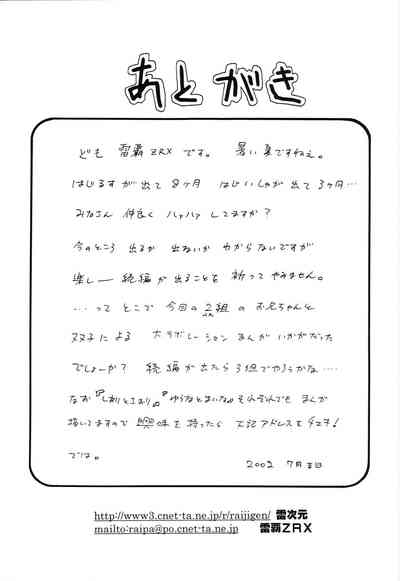 あとがき
ども 雷覇ZRX です。 暑い夏ですねぇ。
はじるすが出て 8ヶ月 はじいしゃが出て 3ヶ月…
みなさん 仲良く ハァハァ してますか？
今のところ 出るか 出ないか わからないですが
楽しー 続編が出ることを 祈って やみません。
…って とこで 今回の 2組 の お兄ちゃんと
双子による コラボレーション まんが いかがだった
でしょーか？ 続編が出たら 3組でやろうかな…
なお それぞれでも まんが
描いてますので 興味を持ったら 下記アドレスを チェキ！
では。
2002 7月
http://www3.cnet-ta.ne.jp/r/raijigen/ 雷次元
mailto:raipa@po.cnet-ta.ne.jp 雷覇ZRX